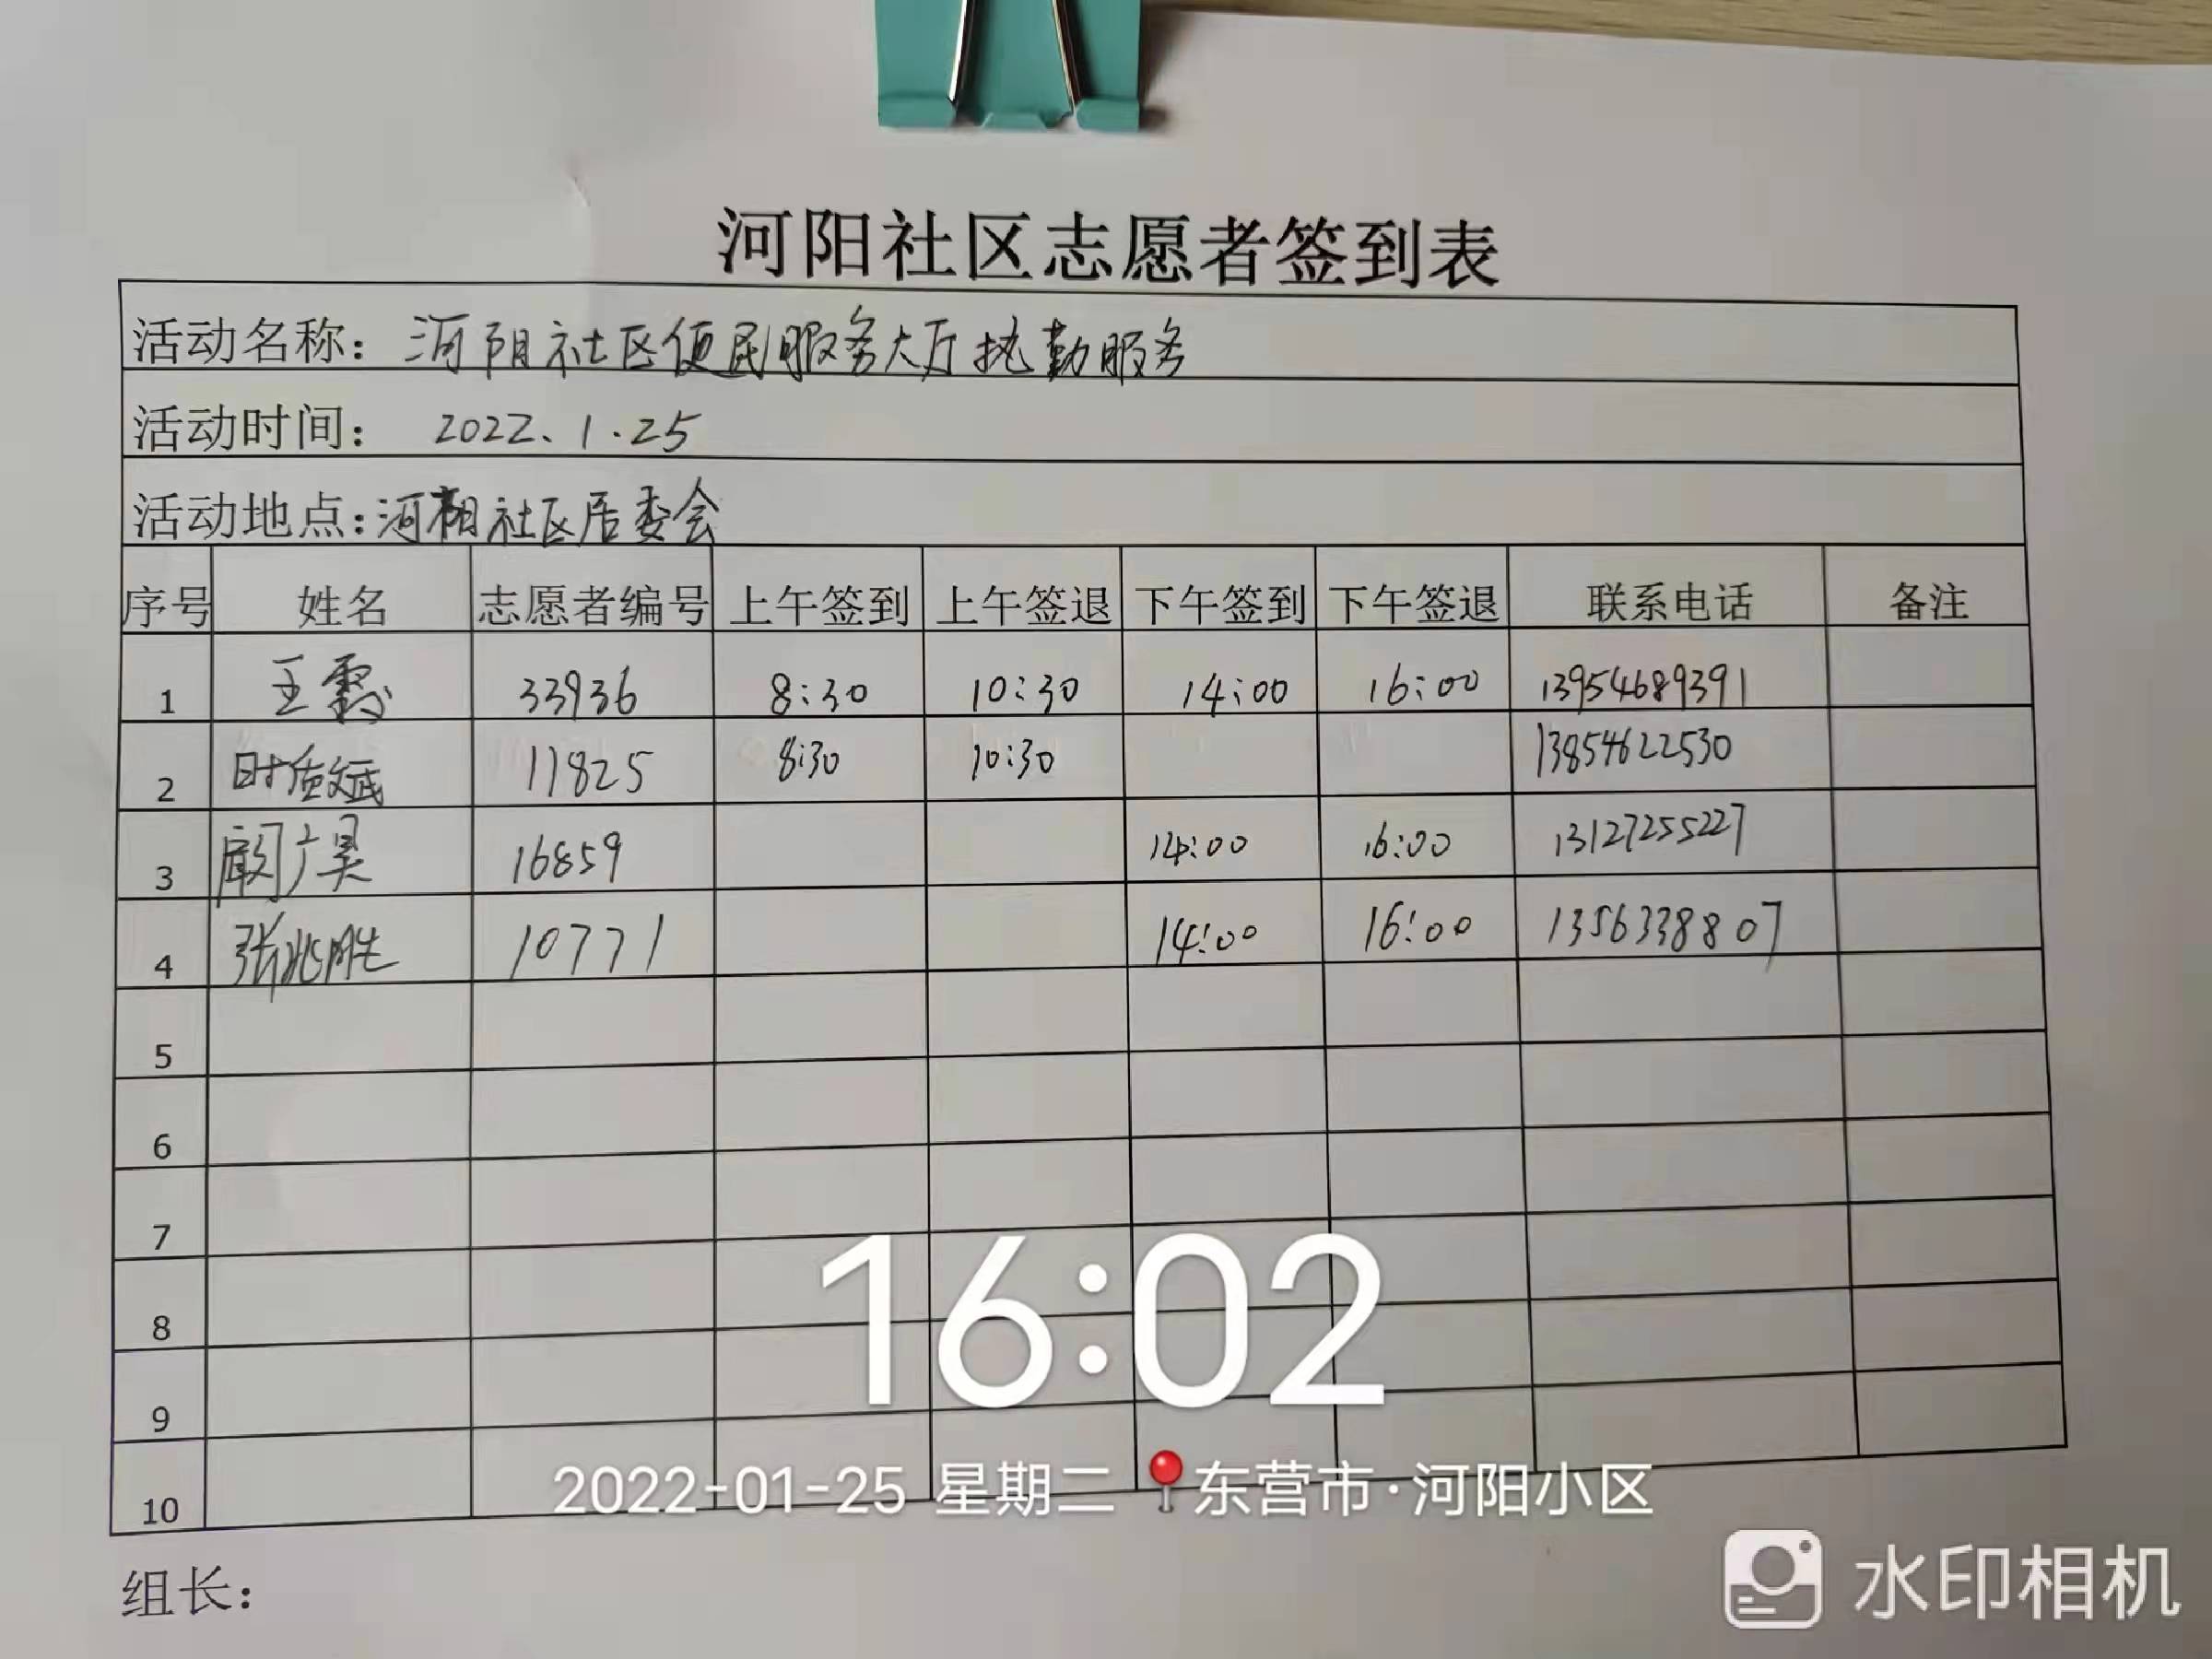 河阳社区志愿者签到表
活动名称：河阳社区便民服务大厅执勤服务
活动时间： 2022.1.25
活动地点:河阳社区居委会
序号 姓名 志愿者编号 上午签到 上午签退 下午签到 下午签退 联系电话 备注
1 王霞 33936 8:30 10:30 14:00 16:00 13954689391
2 11825 8:30 10:30 13854622530
3 16859 14:00 16:00 13127255227
4 张兆胜 10771 14:00 16:00 1356338807
5
6
7
8
9
10
16:02
2022-01-25 星期二 东营市·河阳小区
组长：
水印相机